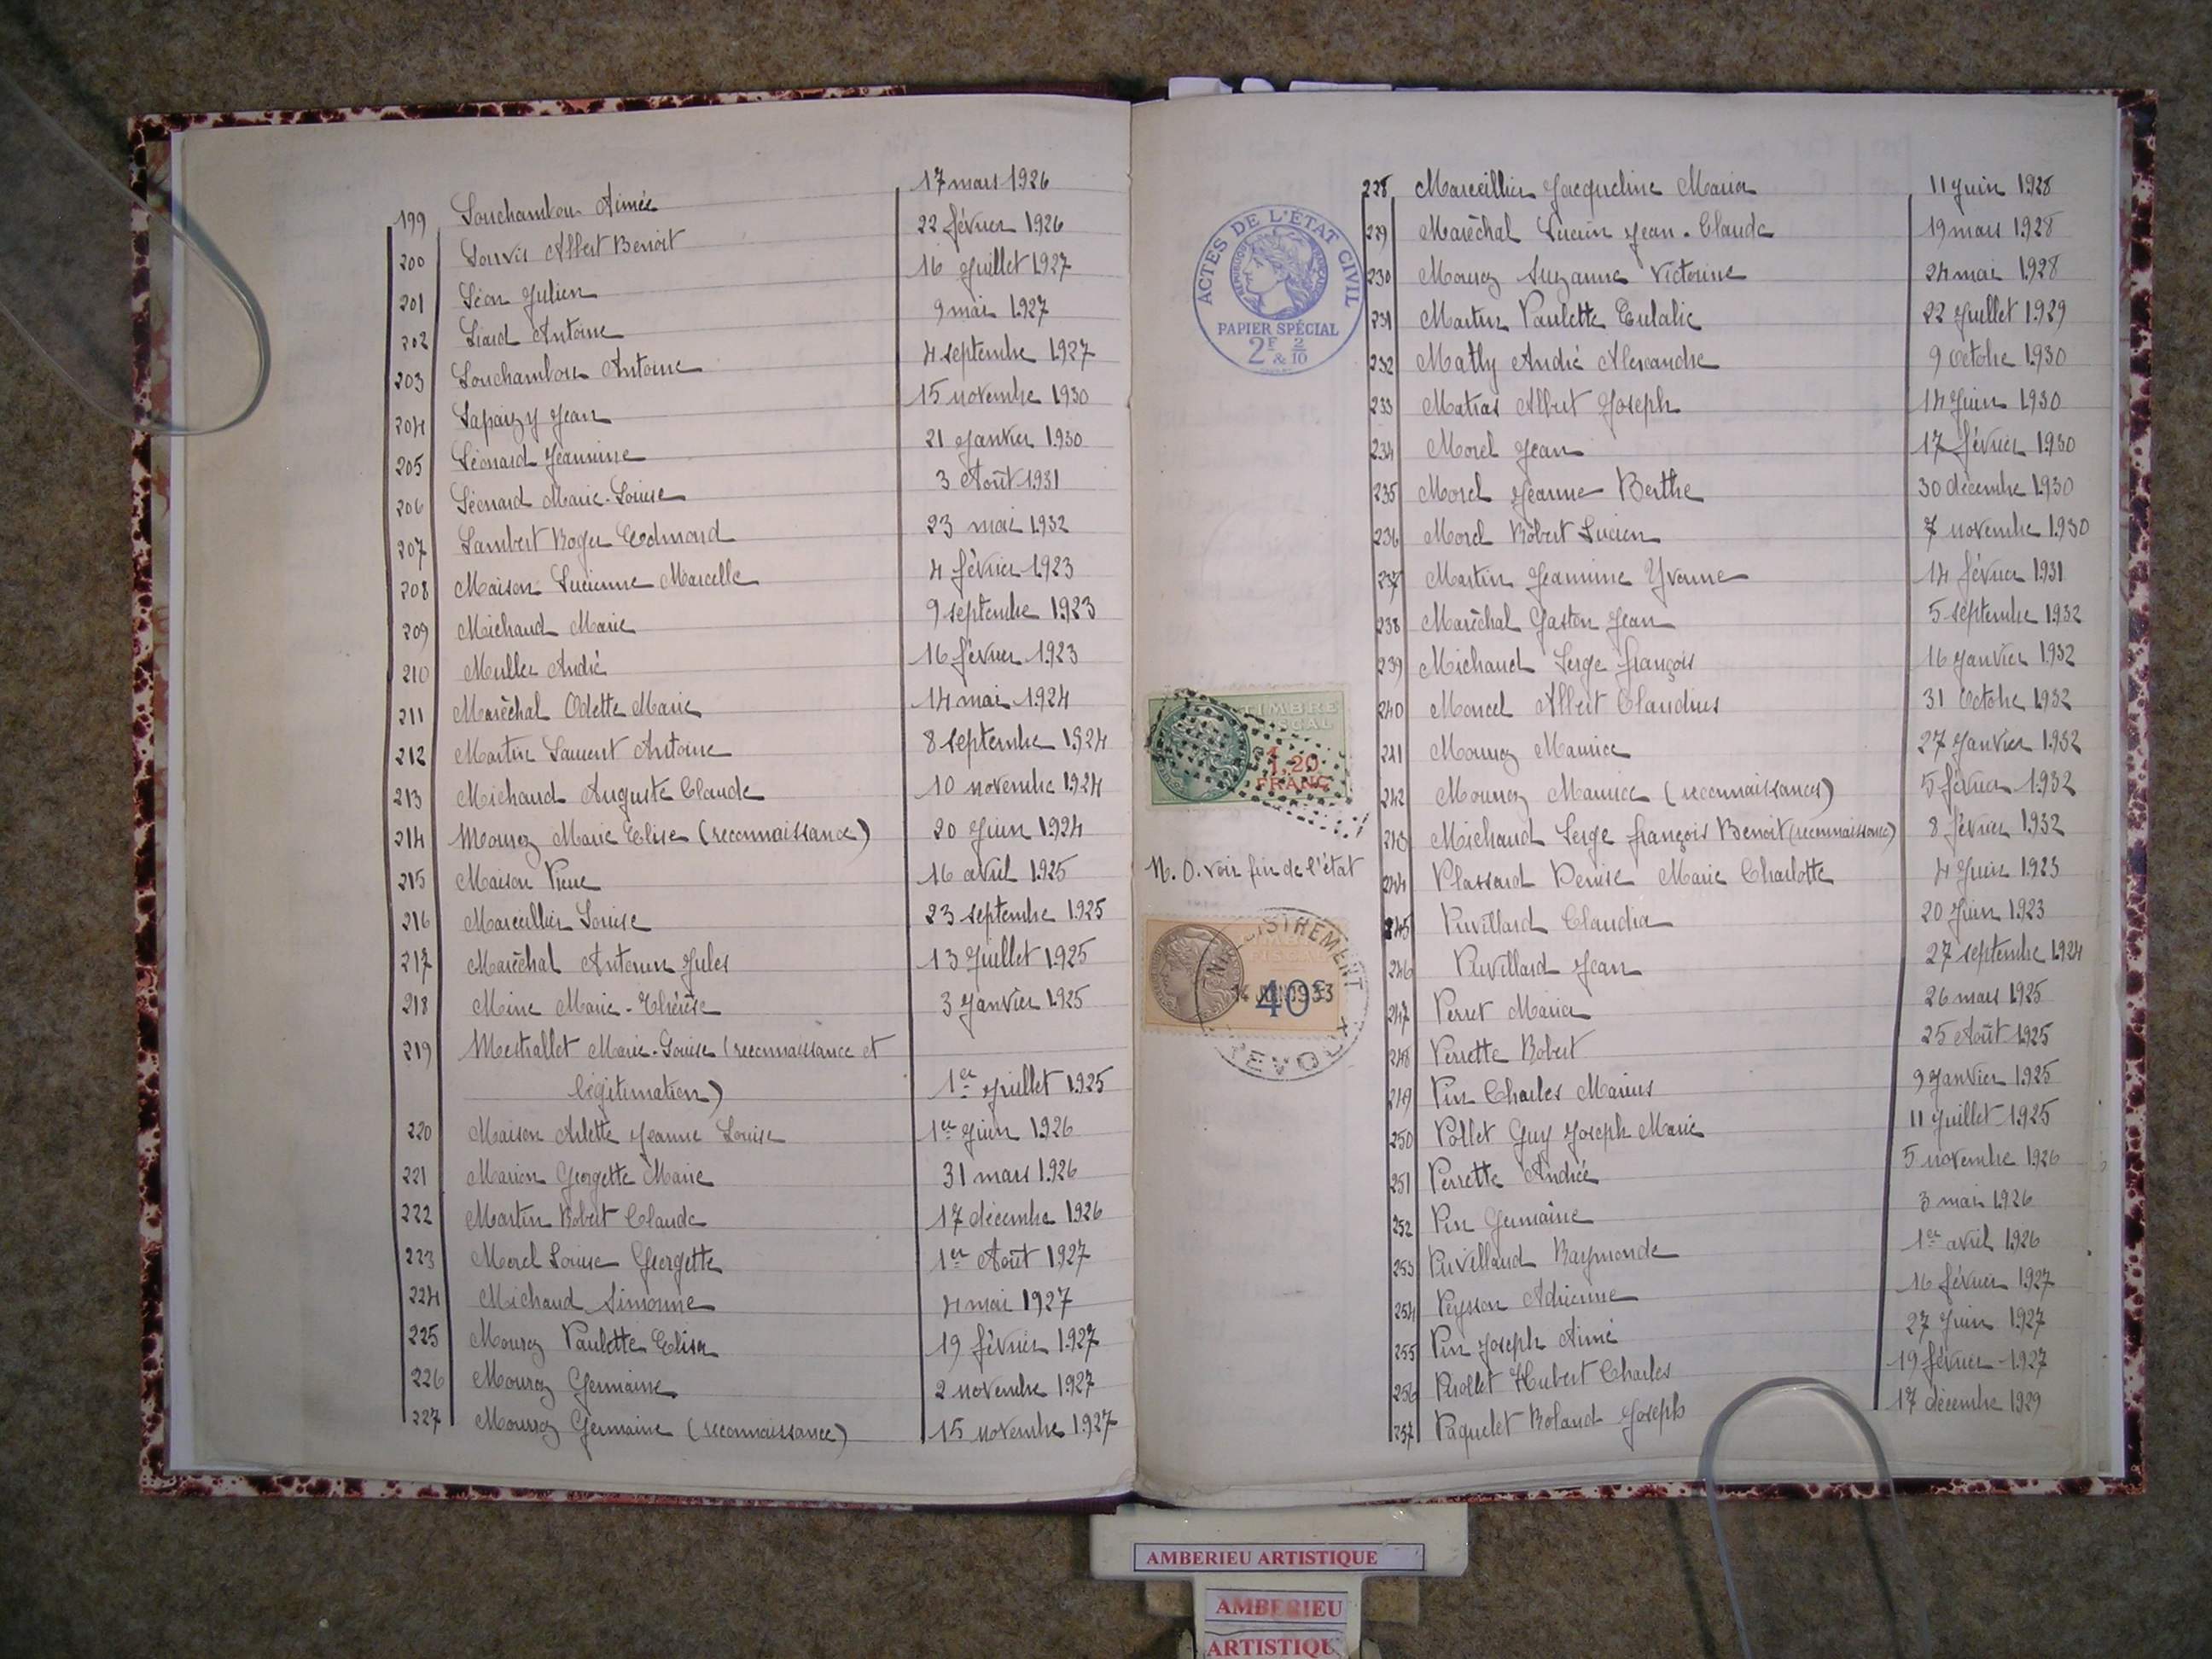 199 Louchambon Aimée 17 mars 1926
200 Louvis Albert Benoit 22 février 1926
201 Léon Julien 16 Juillet 1927
202 Liard Antoine 9 mai 1927
203 Louchambon Antoine 4 septembre 1927
204 Lapaizy Jean 15 novembre 1930
205 Léonard Jeannine 21 Janvier 1930
206 Léonard Marie-Louise 3 Août 1931
207 Lambert Roger Edmond 23 mai 1932
208 Maison Lucienne Marcelle 4 février 1923
209 Michaud Marie 9 septembre 1923
210 Muller André 16 février 1923
211 Maréchal Odette Marie 14 mai 1924
212 Martin Laurent Antoine 8 septembre 1924
213 Michaud Auguste Claude 10 novembre 1924
214 Mourez Marie Elise (reconnaissance) 20 Juin 1924
215 Maison Pierre 16 avril 1925
216 Marceillier Louise 23 septembre 1925
217 Maréchal Antonin Jules 13 Juillet 1925
218 Mine Marie-Thérèse 3 Janvier 1925
219 Mestrallet Marie-Louise (reconnaissance et
légitimation) 1er Juillet 1925
220 Maison Arlette Jeanne Louise 1er Juin 1926
221 Marion Georgette Marie 31 mars 1926
222 Martin Robert Claude 17 décembre 1926
223 Morel Louise Georgette 1er Août 1927
224 Michaud Simonne 4 mai 1927
225 Mourez Paulette Elisa 19 février 1927
226 Mouroz Germaine 2 novembre 1927
227 Mouroz Germaine (reconnaissance) 15 novembre 1927
ACTES DE L'ÉTAT CIVIL
RÉPUBLIQUE FRANÇAISE
PAPIER SPÉCIAL
2F & 2/10
TIMBRE
FISCAL
1,20
FRANC
N. O. voir fin de l'état
ENREGISTREMENT
TIMBRE
FISCAL
40c
1933
228 Marceillier Jacqueline Maria 11 Juin 1928
229 Maréchal Lucien Jean-Claude 19 mars 1928
230 Mourez Suzanne Victorine 24 mai 1928
231 Martin Paulette Eulalie 22 Juillet 1929
232 Mathy André Alexandre 9 Octobre 1930
233 Matras Albert Joseph 14 Juin 1930
234 Morel Jean 17 février 1930
235 Morel Jeanne Berthe 30 décembre 1930
236 Morel Robert Lucien 7 novembre 1930
237 Martin Jeannine Yvonne 14 février 1931
238 Maréchal Gaston Jean 5 septembre 1932
239 Michaud Serge François 16 Janvier 1932
240 Moncel Albert Claudius 31 Octobre 1932
241 Mouroz Maurice 27 Janvier 1932
242 Mouroz Maurice (reconnaissance) 5 février 1932
243 Michaud Serge François Benoit (reconnaissance) 8 février 1932
244 Plassard Denise Marie Charlotte 4 Juin 1923
245 Puvilland Claudia 20 Juin 1923
246 Puvilland Jean 27 septembre 1924
247 Perret Maria 26 mars 1925
248 Perrette Robert 25 Août 1925
249 Pin Charles Marius 9 Janvier 1925
250 Pollet Guy Joseph Marie 11 Juillet 1925
251 Perrette Andrée 5 novembre 1926
252 Pin Germaine 3 mai 1926
253 Puvilland Raymonde 1er avril 1926
254 Peysson Adrienne 16 février 1927
255 Pin Joseph Aimé 27 Juin 1927
256 Pirollet Hubert Charles 19 février 1927
257 Paquelet Roland Joseph 17 décembre 1929
AMBERIEU ARTISTIQUE
AMBERIEU
ARTISTIQU